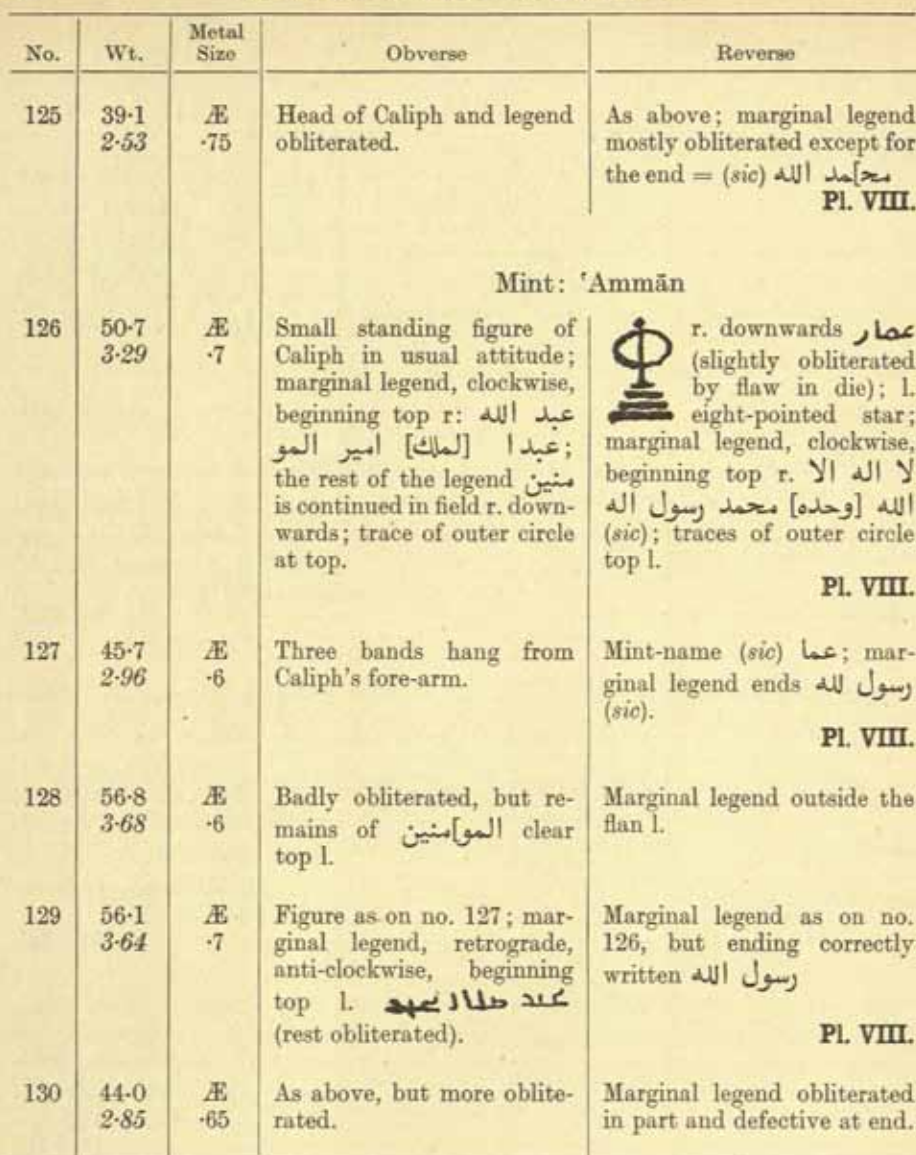 No. Wt. Metal Size Obverse Reverse
125 39·1 Æ Head of Caliph and legend
2·53 ·75 obliterated.
As above; marginal legend
mostly obliterated except for
the end = (sic) محـ]ـمد الله
Pl. VIII.
Mint: ʿAmmān
126 50·7 Æ Small standing figure of
3·29 ·7 Caliph in usual attitude;
marginal legend, clockwise,
beginning top r: عبد الله
عبدا [لملك] امير المو;
the rest of the legend منين
is continued in field r. down-
wards; trace of outer circle
at top.
r. downwards عمار
(slightly obliterated
by flaw in die); l.
eight-pointed star;
marginal legend, clockwise,
beginning top r. لا اله الا
الله [وحده] محمد رسول اله
(sic); traces of outer circle
top l.
Pl. VIII.
127 45·7 Æ Three bands hang from
2·96 ·6 Caliph's fore-arm.
Mint-name (sic) عما; mar-
ginal legend ends رسول لله
(sic).
Pl. VIII.
128 56·8 Æ Badly obliterated, but re-
3·68 ·6 mains of المو]منين clear
top l.
Marginal legend outside the
flan l.
129 56·1 Æ Figure as on no. 127; mar-
3·64 ·7 ginal legend, retrograde,
anti-clockwise, beginning
top l.
(rest obliterated).
Marginal legend as on no.
126, but ending correctly
written رسول الله
Pl. VIII.
130 44·0 Æ As above, but more oblite-
2·85 ·65 rated.
Marginal legend obliterated
in part and defective at end.